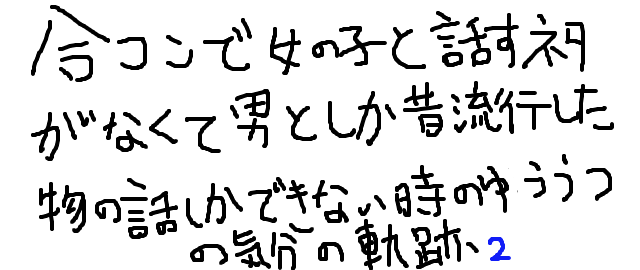 合コンで女の子と話すネタ
がなくて男としか昔流行した
物の話しかできない時のゆううつ
の気分の軌跡、2